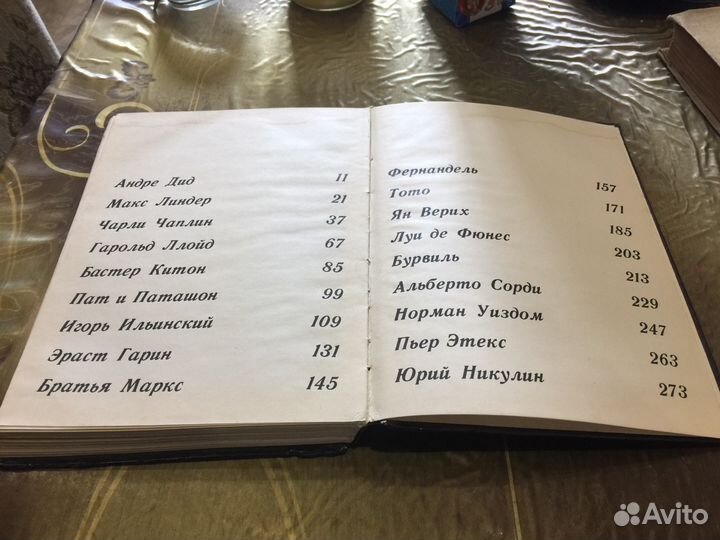 Андре Дид 11
Макс Линдер 21
Чарли Чаплин 37
Гарольд Ллойд 67
Бастер Китон 85
Пат и Паташон 99
Игорь Ильинский 109
Эраст Гарин 131
Братья Маркс 145
Фернандель 157
Тото 171
Ян Верих 185
Луи де Фюнес 203
Бурвиль 213
Альберто Сорди 229
Норман Уиздом 247
Пьер Этекс 263
Юрий Никулин 273
Avito